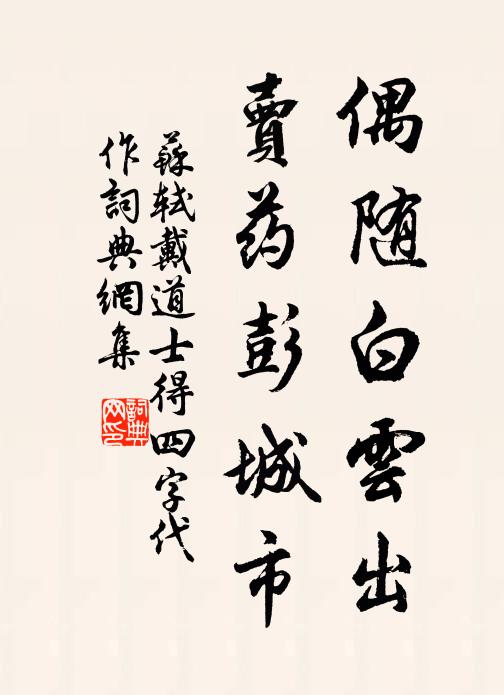 偶随白雲出
賣药彭城市
蘇軾戴道士得四字代
作詞典網集
詞典網印